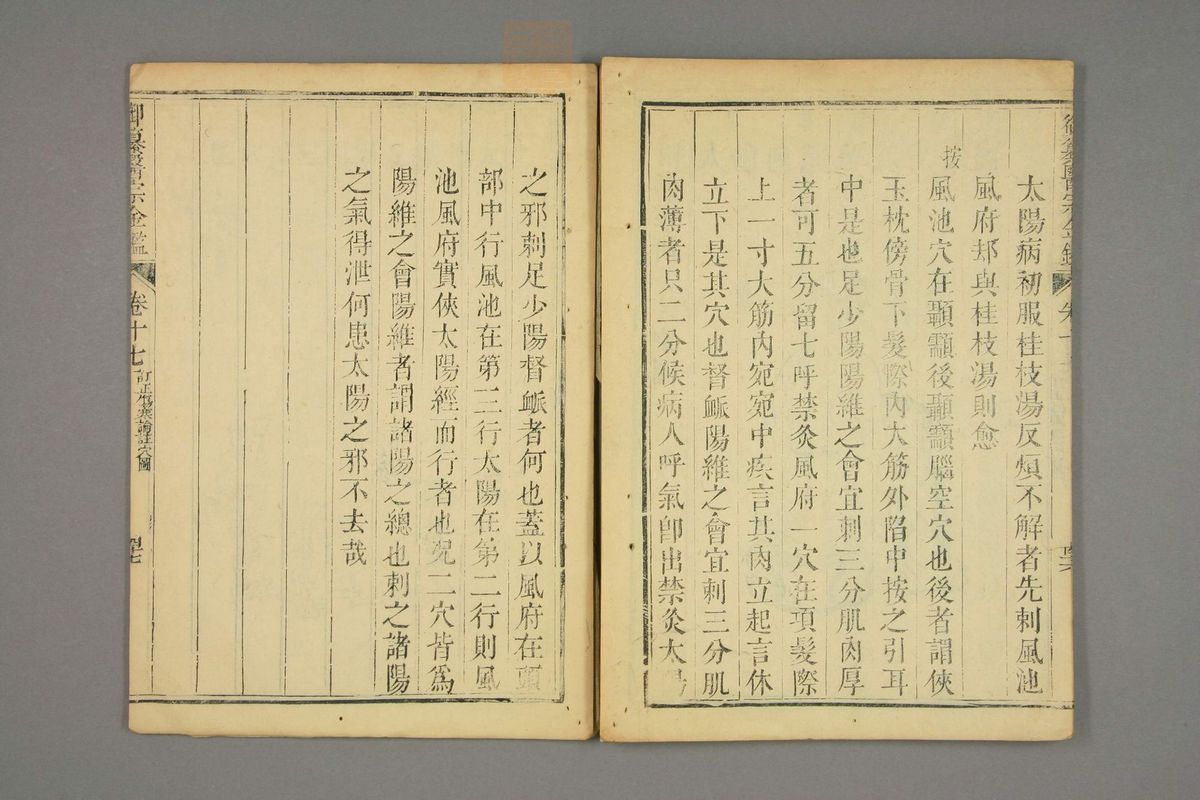 太陽病初服桂枝湯反煩不解者先刺風池
風府却與桂枝湯則愈
按
風池穴在顳顬後顳顬腦空穴也後者謂俠
玉枕傍骨下髮際內大筋外陷中按之引耳
中是也足少陽陽維之會宜刺三分肌肉厚
者可五分留七呼禁灸風府一穴在項髮際
上一寸大筋內宛宛中疾言其肉立起言休
立下是其穴也督脈陽維之會宜刺三分肌
肉薄者只二分候病人呼氣卽出禁灸太陽
之邪刺足少陽督脈者何也蓋以風府在頭
部中行風池在第三行太陽在第二行則風
池風府實俠太陽經而行者也況二穴皆爲
陽維之會陽維者謂諸陽之總也刺之諸陽
之氣得泄何患太陽之邪不去哉
御纂醫宗金鑑
卷十七
訂正傷寒論註穴圖